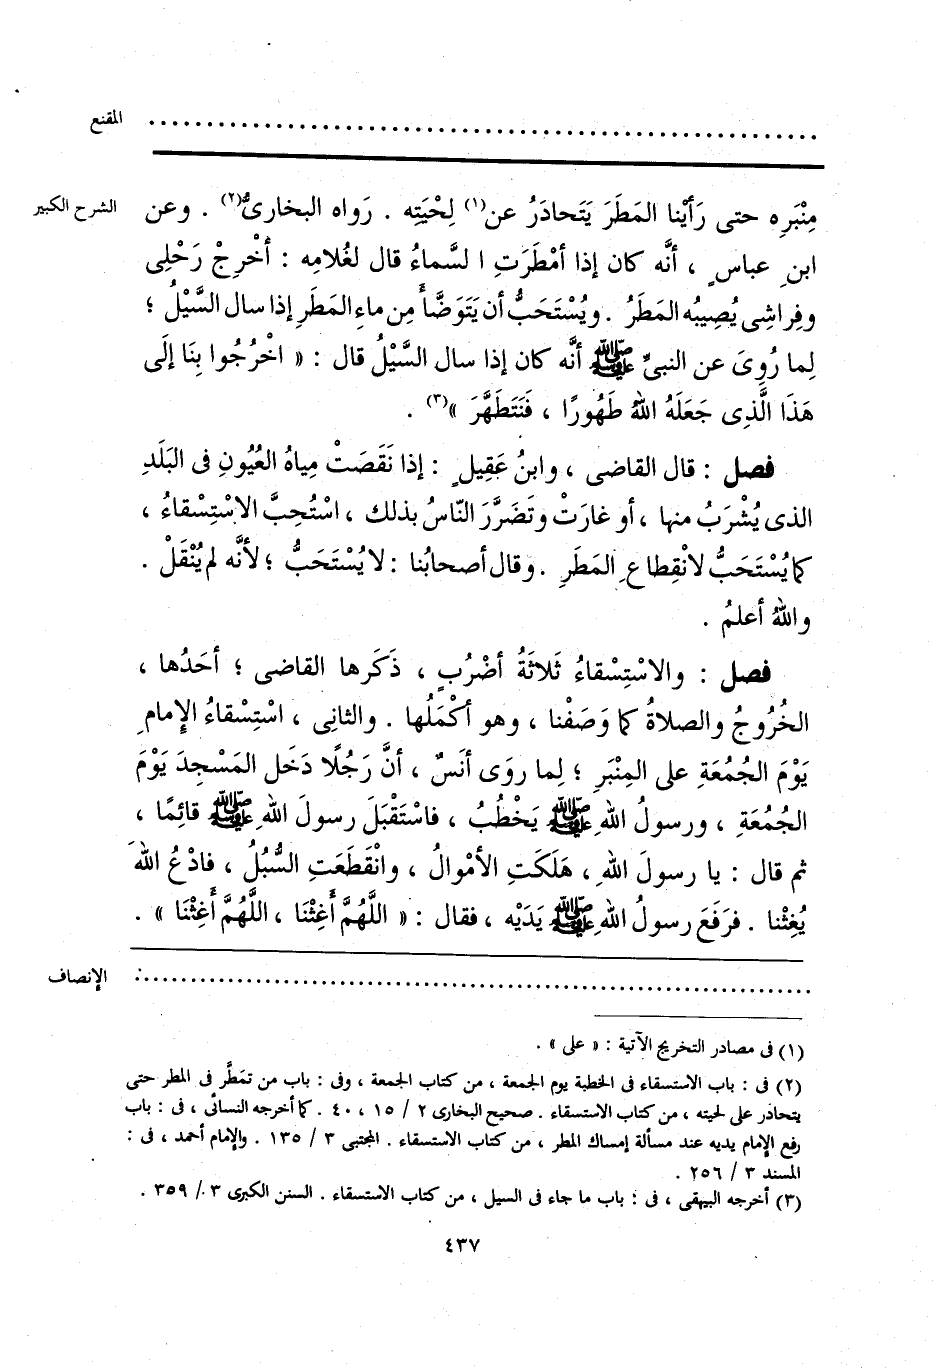 المقنع
الشرح الكبير
مِنْبَرِه حتى رَأَيْنا المَطَرَ يَتَحادَرُ عن(١) لِحْيَتِه . رَواه البخارىُّ(٢) . وعن
ابنِ عباسٍ ، أنَّه كان إذا أمْطَرَتِ السَّماءُ قال لغُلامِه : أخْرِجْ رَحْلِى
وفِراشِى يُصِيبُه المَطَرُ . ويُسْتَحَبُّ أن يَتَوَضَّأَ مِن ماءِ المَطَرِ إذا سال السَّيْلُ ؛
لِما رُوِىَ عن النبىِّ ﷺ أنَّه كان إذا سال السَّيْلُ قال : « اخْرُجُوا بِنَا إلَى
هَذَا الَّذِى جَعَلَهُ اللهُ طَهُورًا ، فَنَتَطَهَّرَ »(٣) .
فصل : قال القاضى ، وابنُ عَقِيلٍ : إذا نَقَصَتْ مِياهُ العُيُونِ فى البَلَدِ
الذى يُشْرَبُ منها ، أو غارَتْ وتَضَرَّرَ النّاسُ بذلك ، اسْتُحِبَّ الاسْتِسْقاءُ ،
كما يُسْتَحَبُّ لانْقِطاعِ المَطَرِ . وقال أصحابُنا : لا يُسْتَحَبُّ ؛ لأنَّه لم يُنْقَلْ .
واللهُ أعلمُ .
فصل : والاسْتِسْقاءُ ثَلاثَةُ أضْرُبٍ ، ذَكَرها القاضى ؛ أحَدُها ،
الخُرُوجُ والصلاةُ كما وَصَفْنا ، وهو أكْمَلُها . والثانِى ، اسْتِسْقاءُ الإِمامِ
يَوْمَ الجُمُعَةِ على المِنْبَرِ ؛ لِما روَى أنَسٌ ، أنَّ رَجُلًا دَخَل المَسْجِدَ يَوْمَ
الجُمُعَةِ ، ورسولُ اللهِ ﷺ يَخْطُبُ ، فاسْتَقْبَلَ رسولَ اللهِ ﷺ قائِمًا ،
ثم قال : يا رسولَ اللهِ ، هَلَكَتِ الأمْوالُ ، وانْقَطَعَتِ السُّبُلُ ، فادْعُ اللهَ
يُغِثْنا . فرَفَعَ رسولُ اللهِ ﷺ يَدَيْه ، فقال : « اللَّهُمَّ أَغِثْنَا ، اللَّهُمَّ أَغِثْنَا » .
الإنصاف
(١) فى مصادر التخريج الآتية : « على » .
(٢) فى : باب الاستسقاء فى الخطبة يوم الجمعة ، من كتاب الجمعة ، وفى : باب من تمطَّر فى المطر حتى
يتحادر على لحيته ، من كتاب الاستسقاء . صحيح البخارى ٢ / ١٥ ، ٤٠ . كما أخرجه النسائى ، فى : باب
رفع الإمام يديه عند مسألة إمساك المطر ، من كتاب الاستسقاء . المجتبى ٣ / ١٣٥ . والإمام أحمد ، فى :
المسند ٣ / ٢٥٦ .
(٣) أخرجه البيهقى ، فى : باب ما جاء فى السيل ، من كتاب الاستسقاء . السنن الكبرى ٣ / ٣٥٩ .
٤٣٧